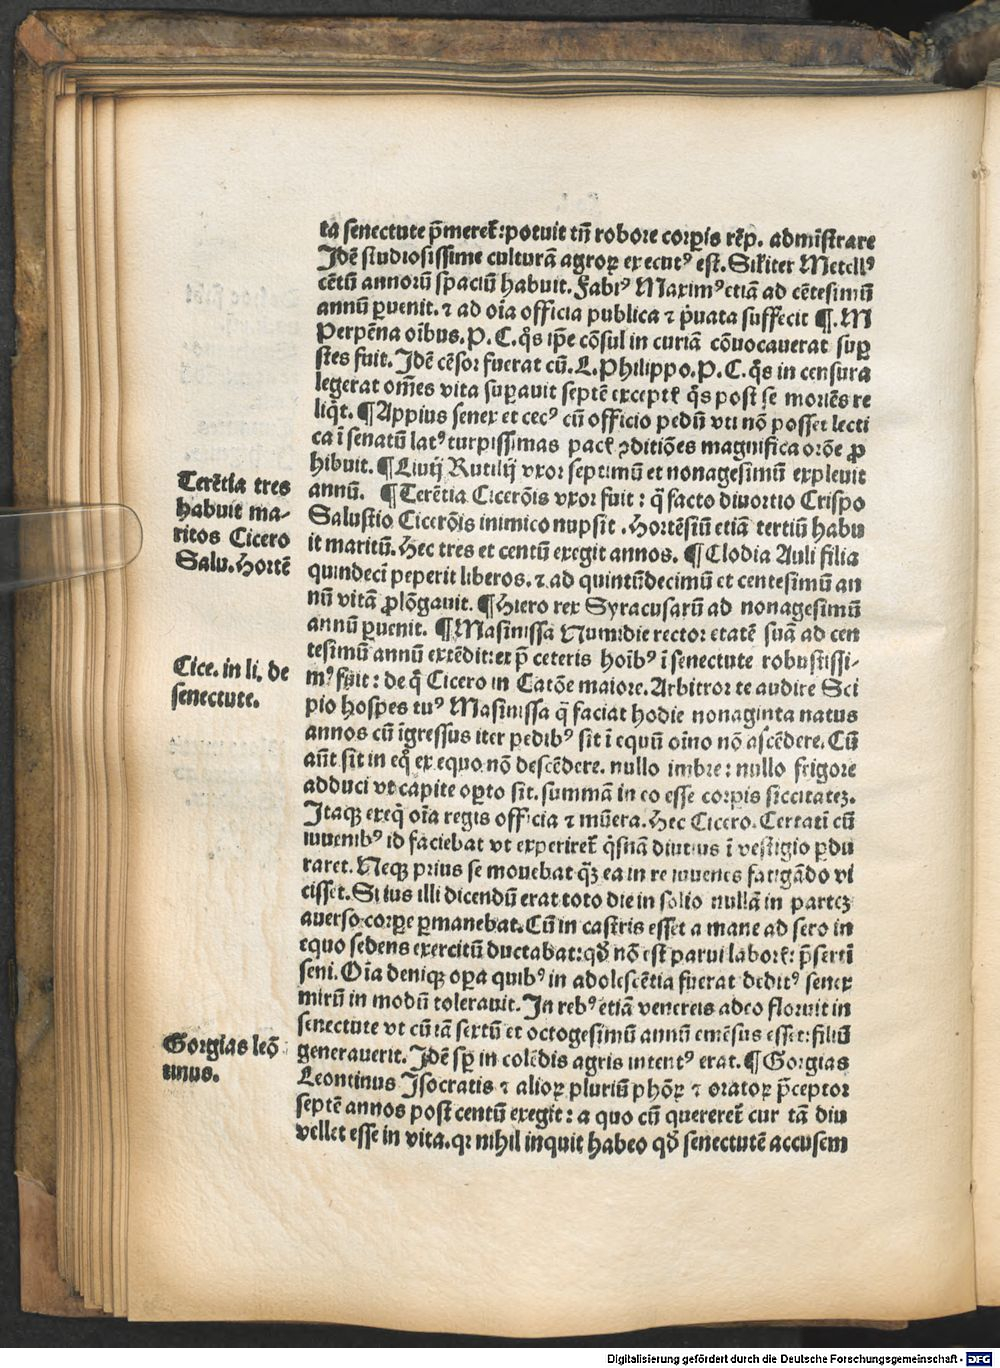 ta senectute p̄meret᷑: potuit tñ robore corꝑis rēp. adm̄istrare
Jdē studiosissime culturā agroꝝ executꝰ est. Sil'iter Metellꝰ
cētū annorū spaciū habuit. Fabiꝰ Maximꝰ etiā ad cētesimū
annū ꝑuenit. ⁊ ad oīa officia publica ⁊ p̄uata suffecit ¶. M
Perpēna oībus. P. C. q̄s ip̄e cōsul in curiā cōuocauerat suꝑ
stes fuit. Jdē cēsor fuerat cū. L. Philippo. P. C. q̄s in censura
legerat om̄es vita suꝑauit septē except̉ q̄s post se moriēs re
liq̄t. ¶ Appius senex et cecꝰ cū officio pedū vti nō posset lecti
ca ī senatū latꝰ turpissimas pac̉ ꝯditiōes magnifica orōe ꝓ
hibuit. ¶ Liuij Rutilij vxor septimū et nonagesimū expleuit
annū. ¶ Terētia Cicerōis vxor fuit: q̄ facto diuortio Crispo
Salustio Cicerōis inimico nupsit. Hortēsiū etiā tertiū habu
it maritū. Hec tres et centū exegit annos. ¶ Clodia Auli filia
quindecī peperit liberos. ⁊ ad quintūdecimū et centesimū an
nū vitā ꝓlōgauit. ¶ Hiero rex Syracusarū ad nonagesimū
annū ꝑuenit. ¶ Masinissa Numidie rector etatē suā ad cen
tesimū annū extēdit: ex p̄ ceteris hoībꝰ ī senectute robustissi-
mꝰ fuit: de q̄ Cicero in Catōe maiore. Arbitror te audire Sci
pio hospes tuꝰ Masinissa q̄ faciat hodie nonaginta natus
annos cū īgressus iter pedibꝰ sit ī equū oīno nō ascēdere. Cū
aūt sit in eq̊ ex equo nō descēdere. nullo imbre: nullo frigore
adduci vt capite oꝑto sit. summā in eo esse corꝑis siccitatē.
Jtaqꝫ exeq̄ oīa regis officia ⁊ mūera. Hec Cicero. Certatī cū
iuuenibꝰ id faciebat vt experiret᷑ q̄snā diutius ī vestigio ꝑdu
raret. Neqꝫ prius se mouebat q̄ꝫ ea in re iuuenes fatigādo vi
cisset. Si ius illi dicendū erat toto die in solio nullā in partē
auerso corꝑe ꝑmanebat. Cū in castris esset a mane ad sero in
equo sedens exercitū ductabat: qđ nō est parui labor̉: p̄sertī
seni. Oīa deniqꝫ oꝑa quibꝰ in adolescētia fuerat deditꝰ senex
mirū in modū tolerauit. Jn rebꝰ etiā venereis adeo floruit in
senectute vt cū iā sextū et octogesimū annū emēsus esset: filiū
generauerit. Jdē sꝑ in colēdis agris intentꝰ erat. ¶ Gorgias
Leontinus Jsocratis ⁊ alioꝝ pluriū phōꝝ ⁊ oratoꝝ p̄ceptor
septē annos post centū exegit: a quo cū quereret᷑ cur tā diu
vellet esse in vita. qꝛ nihil inquit habeo qđ senectutē accusem
Terētia tres
habuit ma-
ritos Cicero
Salu. Hortē
Cice. in li. de
senectute.
Gorgias leō
tinus.
Digitalisierung gefördert durch die Deutsche Forschungsgemeinschaft - DFG